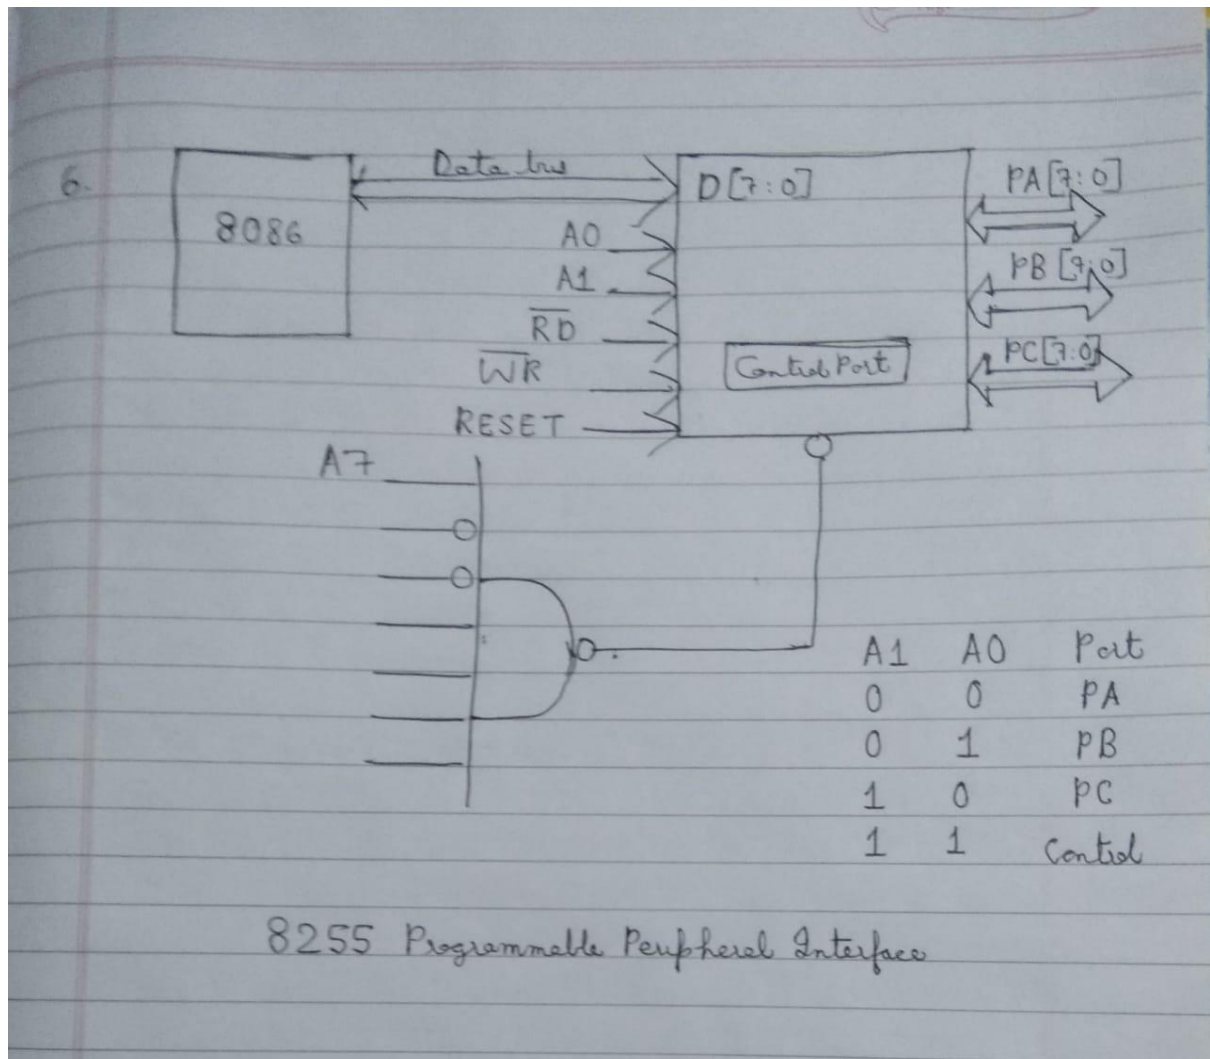 6.
8086
Data bus
D[7:0]
PA[7:0]
A0
PB[7:0]
A1
RD
WR
Control Port
PC[7:0]
RESET
A7
A1 A0 Port
0 0 PA
0 1 PB
1 0 PC
1 1 Control
8255 Programmable Peripheral Interface